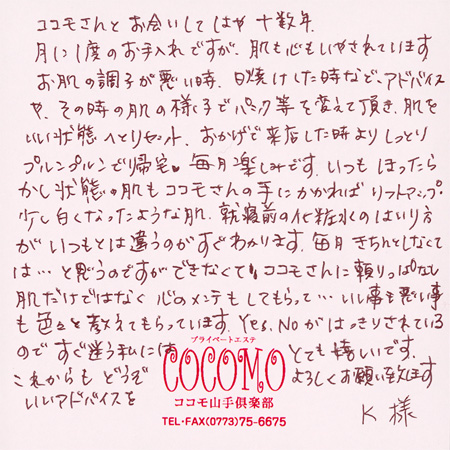 ココモさんとお会いしてはや十数年
月に1度のお手入れですが、肌も心もいやされています
お肌の調子が悪い時、日焼けした時など、アドバイス
や、その時の肌の様子でパック等を変えて頂き、肌を
いい状態へとリセット、おかげで来店した時よりしっとり
プルンプルンで帰宅♥毎月楽しみです。いつもほったら
かし状態の肌もココモさんの手にかかればリフトアップ、
少し白くなったような肌、就寝前の化粧水のはいり方
がいつもとは違うのがすぐわかります。毎月きちんとしなくて
は…と思うのですができなくて、ココモさんに頼りっぱなし
肌だけではなく心のメンテもしてもらって…いい事も悪い事
も色々と教えてもらっています。Yes、Noがはっきりされている
のですぐ迷う私には とても嬉しいです。
プライベートエステ
COCOMO
これからもどうぞ よろしくお願い致します
いいアドバイスを
ココモ山手倶楽部
TEL・FAX(0773)75-6675
K様